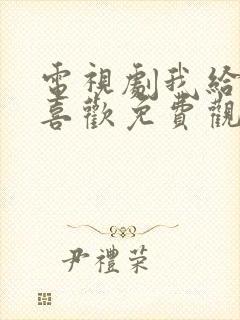 電視劇我給
喜歡免費觀
尹禮荣